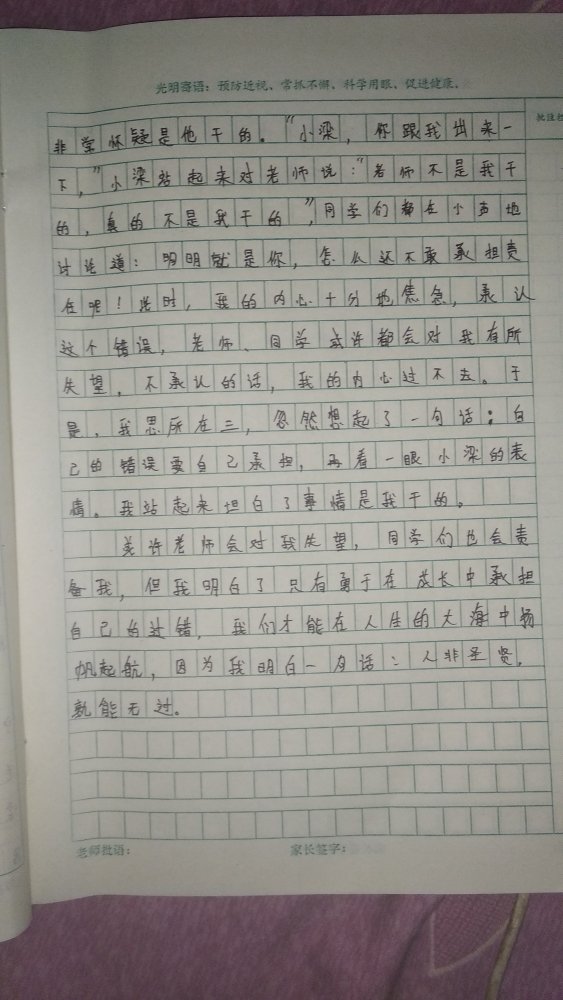 光明寄语：预防近视、常抓不懈、科学用眼、促进健康。
批注栏
非常怀疑是他干的。“小梁，你跟我出来一
下，”小梁站起来对老师说：“老师不是我干
的，真的不是我干的”，同学们都在小声地
讨论道：明明就是你，怎么还不敢承担责
任呢！此时，我的内心十分地焦急，承认
这个错误，老师、同学或许都会对我有所
失望，不承认的话，我的内心过不去。于
是，我思所在三，忽然想起了一句话：自
己的错误要自己承担，再看一眼小梁的表
情。我站起来坦白了事情是我干的。
或许老师会对我失望，同学们也会责
备我，但我明白了只有勇于在成长中承担
自己的过错，我们才能在人生的大海中扬
帆起航，因为我明白一句话：人非圣贤，
孰能无过。
老师批语：
家长签字：